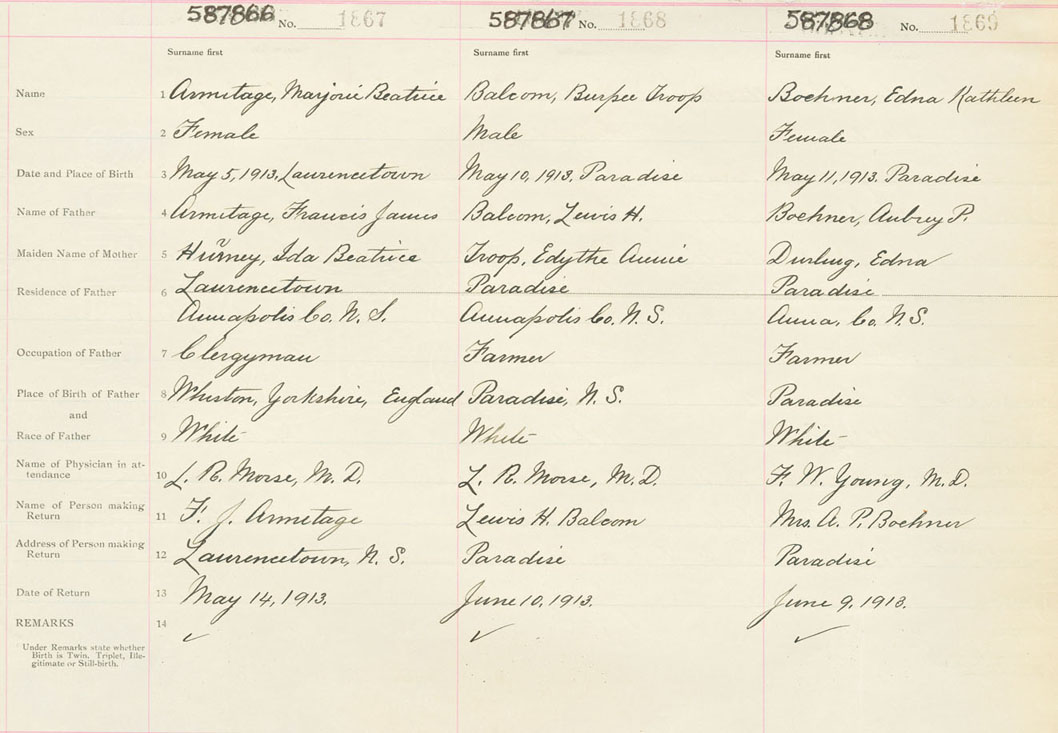 587866 No. 1867 587867 No. 1868 587868 No. 1869
Surname first Surname first Surname first
Name 1 Armitage, Marjorie Beatrice Balcom, Burpee Troop Boehner, Edna Kathleen
Sex 2 Female Male Female
Date and Place of Birth 3 May 5, 1913, Laurencetown May 10, 1913. Paradise May 11, 1913. Paradise
Name of Father 4 Armitage, Francis James Balcom, Lewis H. Boehner, Aubrey P.
Maiden Name of Mother 5 Ida Beatrice Troop, Edythe Annie Durling, Edna
Residence of Father 6 Laurencetown Paradise Paradise
Annapolis Co. N. S. Annapolis Co. N. S. Anna. Co. N. S.
Occupation of Father 7 Clergyman Farmer Farmer
Place of Birth of Father 8 Whiston, Yorkshire, England Paradise, N. S. Paradise
and
Race of Father 9 White White White
Name of Physician in at-
tendance 10 L. R. Morse, M. D. L. R. Morse, M. D. F. W. Young, M. D.
Name of Person making
Return 11 F. J. Armitage Lewis H. Balcom Mrs. A. P. Boehner
Address of Person making
Return 12 Laurencetown, N. S. Paradise Paradise
Date of Return 13 May 14, 1913. June 10, 1913. June 9, 1913.
REMARKS 14
✓ ✓ ✓
Under Remarks state whether
Birth is Twin, Triplet, Ille-
gitimate or Still-birth.